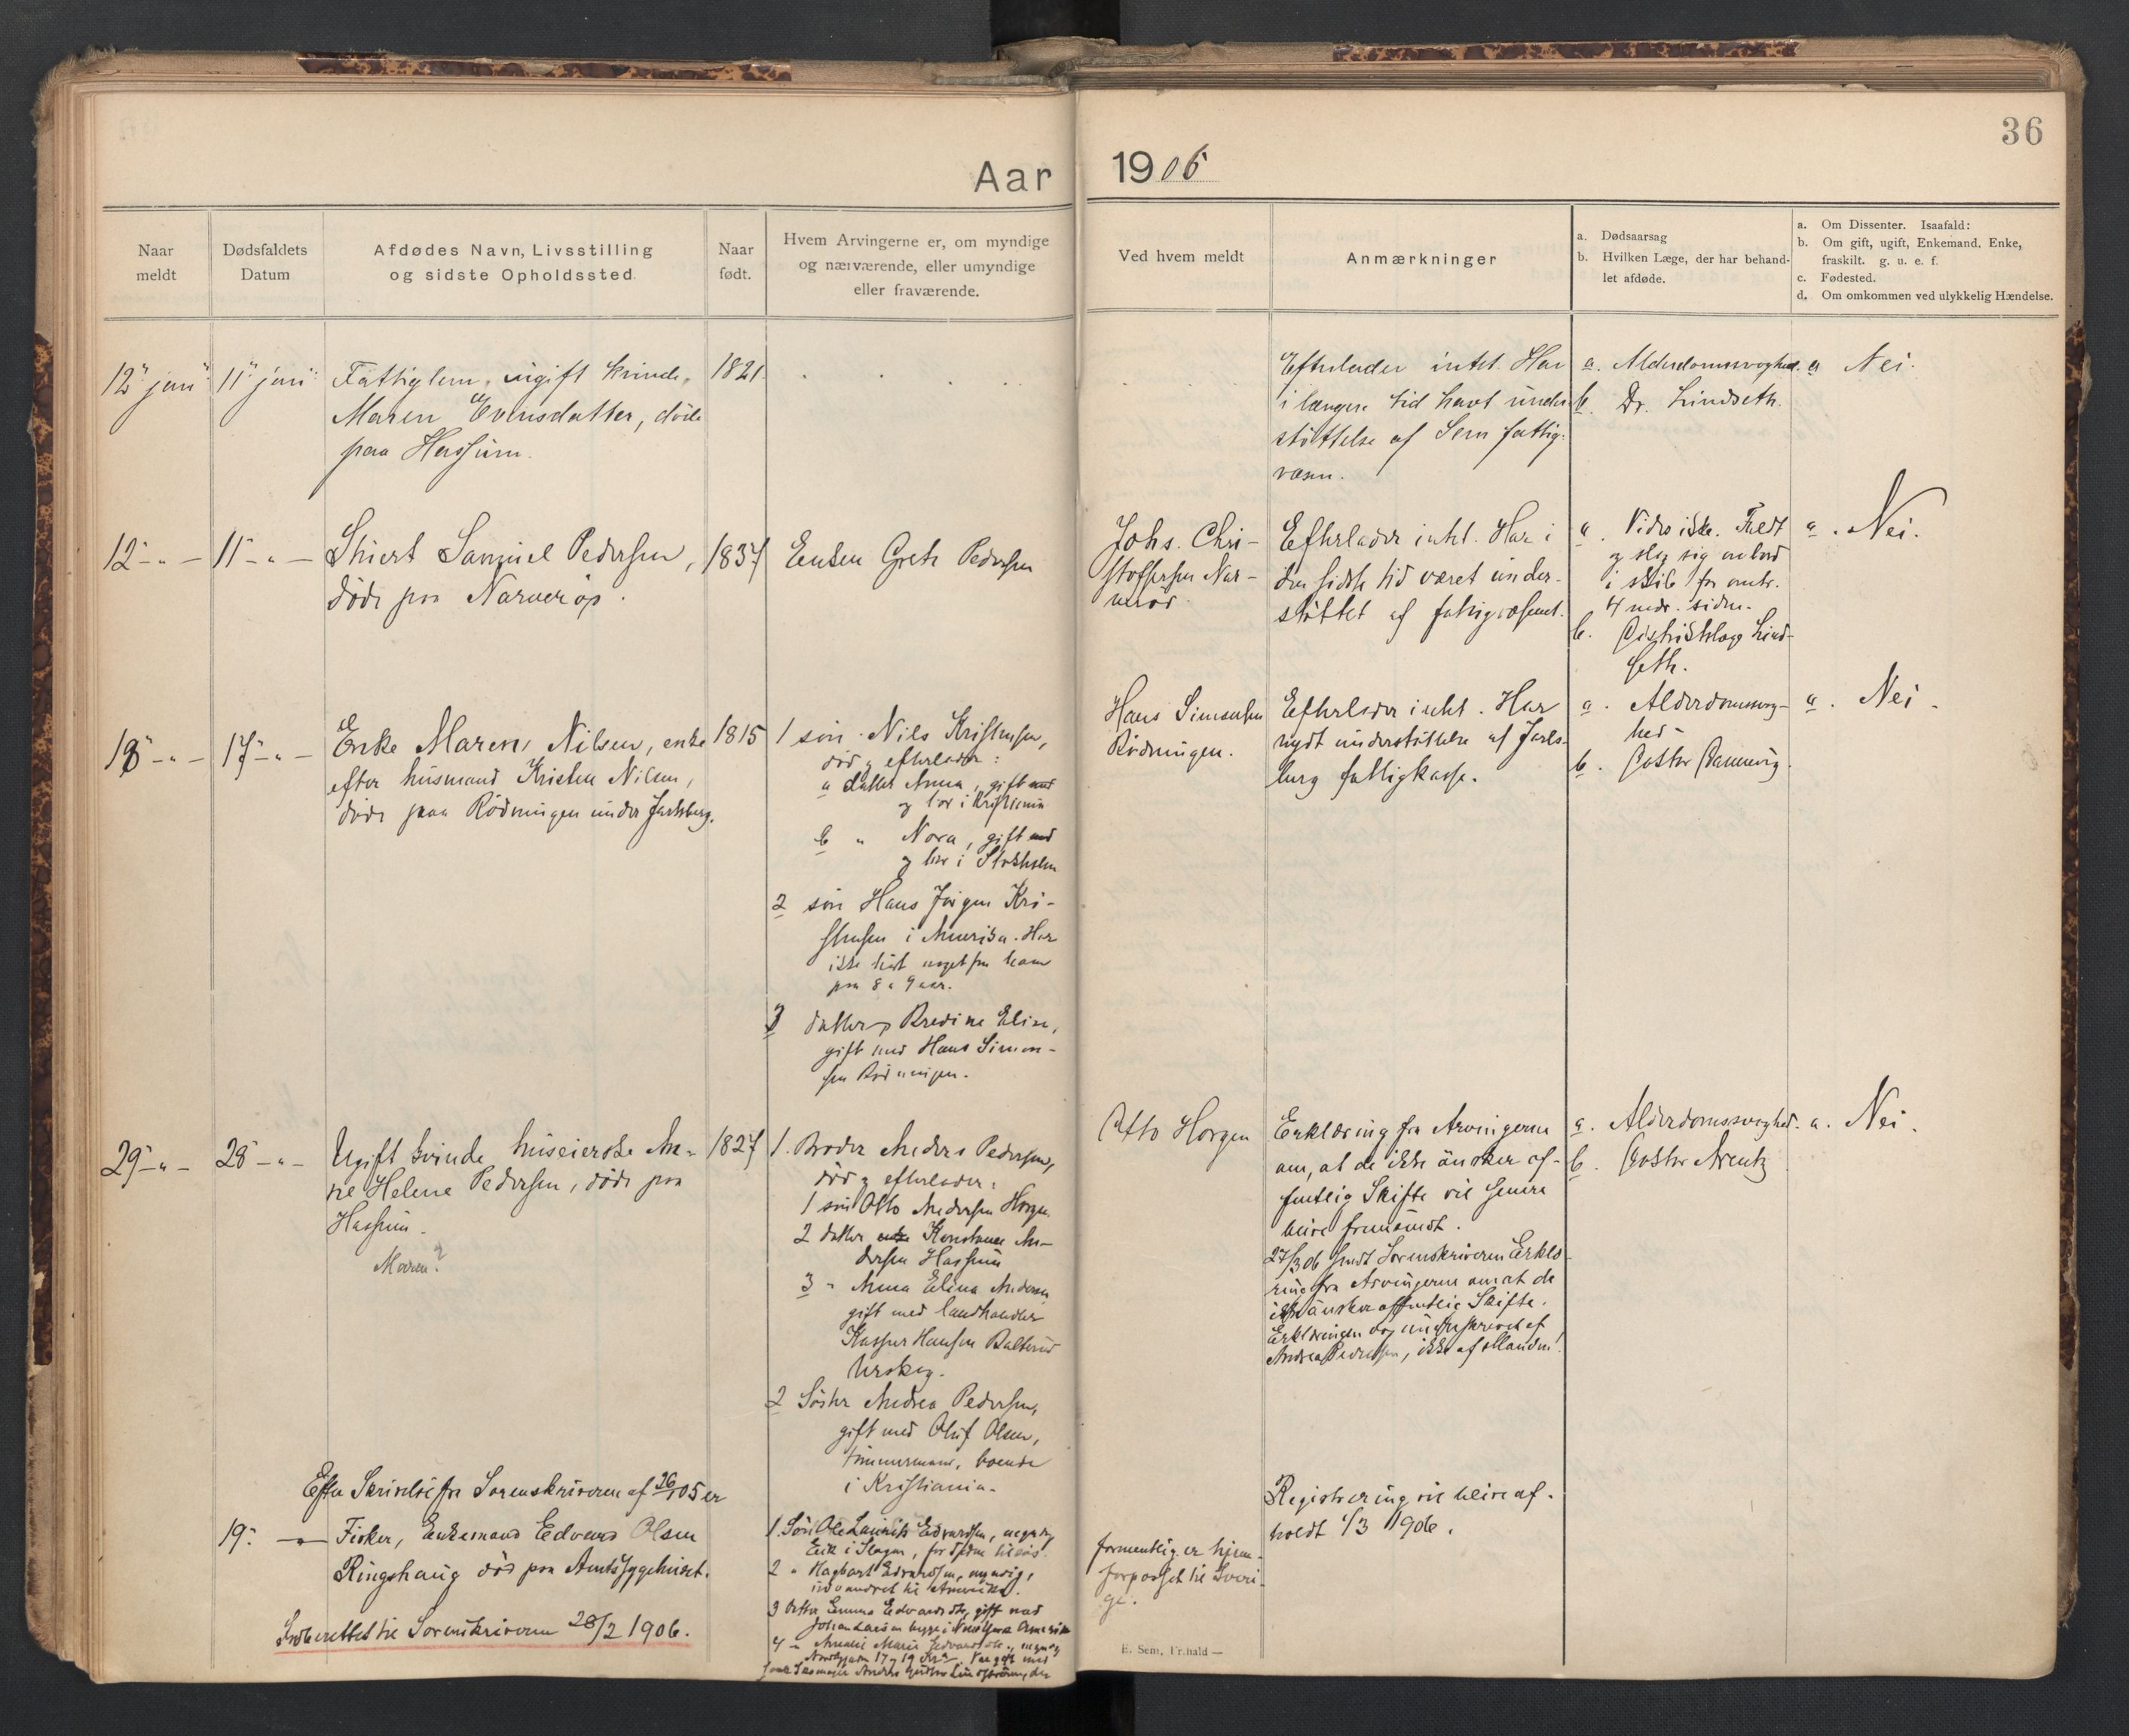 36
Aar 1906
Naar meldt
Dødsfaldets Datum
Afdødes Navn, Livsstilling og sidste Opholdssted
Naar født.
Hvem Arvingerne er, om myndige og nærværende, eller umyndige eller fraværende.
Ved hvem meldt
Anmærkninger
a. Dødsaarsag
b. Hvilken Læge, der har behandlet afdøde.
a. Om Dissenter. Isaafald:
b. Om gift, ugift, Enkemand. Enke, fraskilt. g. u. e. f.
c. Fødested.
d. Om omkommen ved ulykkelig Hændelse.
12 jan
11 jan
Fattiglem, ugift kvinde,
Maren Evensdatter, døde
paa Hassum.
1821
Efterlader intet. Har
i længere tid havt under
støttelse af Sem fattig-
væsen.
a. Alderdomssvaghed.
b. Dr. Lindseth.
a Nei.
12 - " -
11 - " -
Samuel Pedersen,
døde paa
1837
Enken Grete Pedersen
Johs. Chri-
stoffersen Nar-
verød
Efterlader intet. Har i
den sidste tid været under-
støttet af fattigvæsenet.
a. Vides ikke. Faldt
og slog sig ombord
i skib for omtr.
4 mdr. siden.
b. Distriktslæge Lind-
seth.
a. Nei.
18 - " -
17 - " -
Enke Maren Nilsen, enke
efter husmand Kristen Nilsen,
døde paa Rødningen under Jarlsberg.
1815
1 søn Nils Kristensen,
død og efterlader:
a datter Anna, gift med
og bor i Kristiania
b " Nora, gift med
og bor i Stokholm
2 søn Hans Jørgen Kri-
stensen i Amerika. Har
ikke hørt noget fra ham
paa 8 a 9 aar.
3 datter Bredine Elise,
gift med Hans Simon-
sen Rødningen.
Hans Simonsen
Rødningen.
Efterlader intet. Har
nydt understøttelse af Jarls-
berg fattigkasse.
a. Alderdomssvag-
hed
b. Doktor
a. Nei.
29 - " -
28 - " -
Ugift kvinde huseierske An-
ne Helene Pedersen, døde paa
Hassum.
Maren?
1827
1. Broder Anders Pedersen,
død og efterlader:
1 søn Otto Andersen Horgen
2 datter Konstance An-
dersen Hassum
3 " Anna Elina Andersen
gift med landhandler
Kasper Hansen
Urskog.
2 Søster Andrea Pedersen,
gift med Oluf Olsen,
tømmermand, boende
i Kristiania.
Otto Horgen
Erklæring fra Arvingerne
om, at de ikke ønsker of-
fentlig Skifte vil senere
blive fremsendt.
27/3 06 sendt Sorenskriveren Erklæ-
ring fra Arvingerne om at de
ikke ønsker offentlig Skifte.
Erklæringen dog underskrevet af
Andrea Pedersen, ikke af Manden!
a. Alderdomssvaghed.
b. Doktor Arentz
a. Nei.
Efter Skrivelse fra Sorenskriveren af 26/1 05 er
19. Fisker, Enkemand Edvard Olsen
Ringshaug død paa Amtssygehuset.
Indberettet til Sorenskriveren 28/2 1906.
1. Søn Ole Edvardsen, myndig
i Slagen, for Tiden tilsøs.
2 " Hagbart Edvardsen, myndig,
udvandret til Amerika.
3 Datter Emma Edvardsdtr, gift med
Johan Larsen
4 " Amalie Marie Edvardsdtr.
formentlig er hjem-
forpasset til Sveri-
ge.
Registrering vil blive af-
holdt 1/3 1906.
E. Sem, Fr.hald —